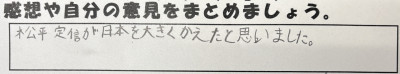 感想や自分の意見をまとめましょう。
松平定信が日本を大きくかえたと思いました。